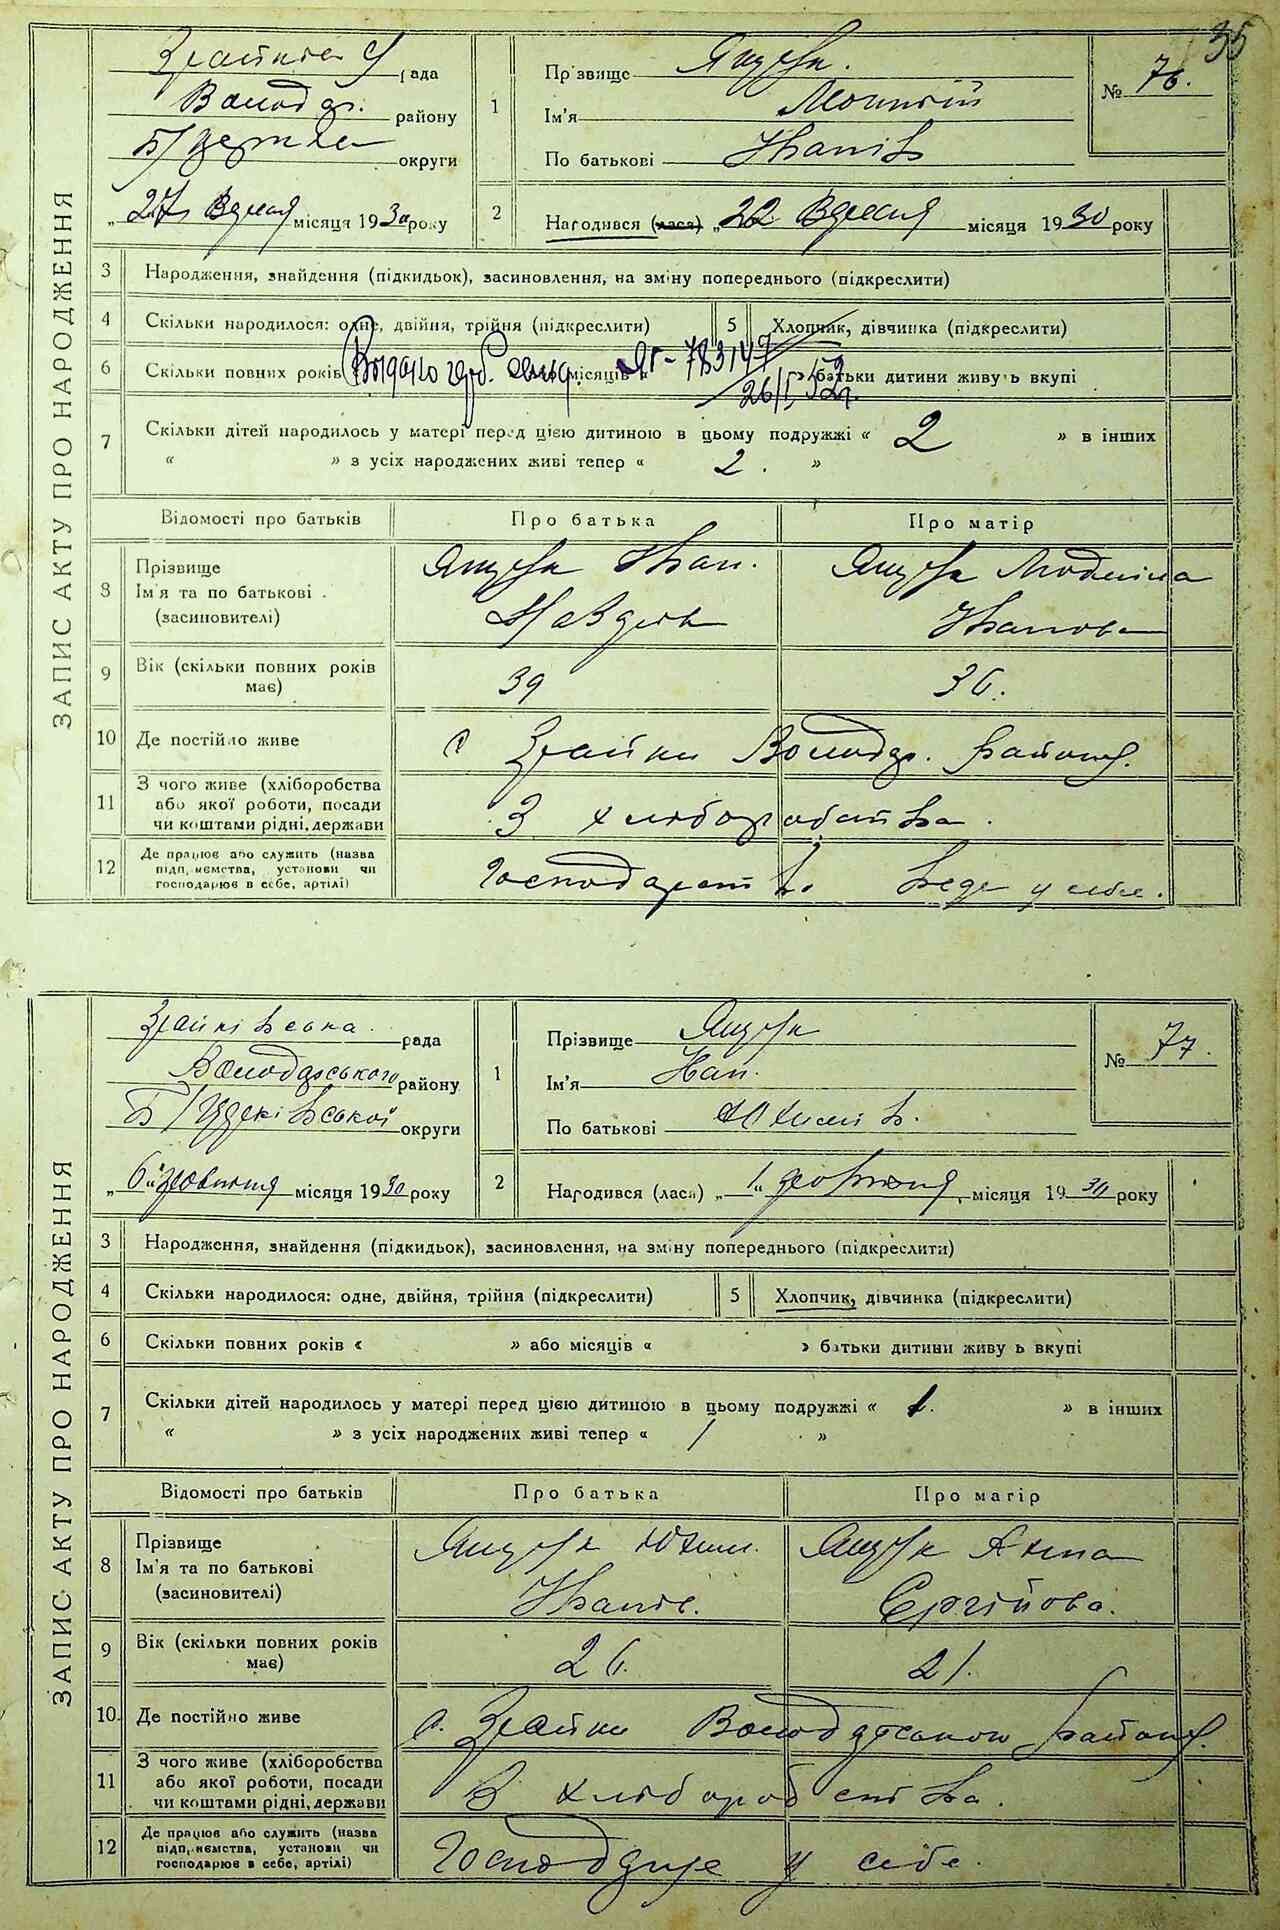 35
ЗАПИС АКТУ ПРО НАРОДЖЕННЯ
рада
Володар. району
Б/Церкв округи
„27„ Вересня місяця 1930 року
1
Прізвище Ящук.
Ім'я
По батькові Іванів
№ 76.
2
Народився (лася) „22 Вересня місяця 1930 року
3 Народження, знайдення (підкидьок), засиновлення, на зміну попереднього (підкреслити)
4 Скільки народилося: одне, двійня, трійня (підкреслити) 5 Хлопчик, дівчинка (підкреслити)
6 Скільки повних років « місяців « » батьки дитини живуть вкупі
Выдано 783147
26/I 52г.
7 Скільки дітей народилось у матері перед цією дитиною в цьому подружжі « 2 » в інших
« » з усіх народжених живі тепер « 2. »
Відомості про батьків Про батька Про матір
8 Прізвище
Ім'я та по батькові
(засиновителі)
Ящук Іван.
Ящук
Іванова
9 Вік (скільки повних років має) 39 36.
10 Де постійно живе с Зрайки Володар. району.
11 З чого живе (хліборобства
або якої роботи, посади
чи коштами рідні, держави
З хліборобства.
12 Де працює або служить (назва
підприємства, установи чи
господарює в себе, артілі)
Господарство веде у себе.
ЗАПИС АКТУ ПРО НАРОДЖЕННЯ
Зрайківська рада
Володарського району
Б/Церківської округи
„6„ жовтня місяця 1930 року
1
Прізвище Ящук
Ім'я Іван.
По батькові Юхимів.
№ 77.
2
Народився (лася) „1„ жовтня місяця 1930 року
3 Народження, знайдення (підкидьок), засиновлення, на зміну попереднього (підкреслити)
4 Скільки народилося: одне, двійня, трійня (підкреслити) 5 Хлопчик, дівчинка (підкреслити)
6 Скільки повних років « » або місяців « » батьки дитини живуть вкупі
7 Скільки дітей народилось у матері перед цією дитиною в цьому подружжі « 1. » в інших
« » з усіх народжених живі тепер « 1 »
Відомості про батьків Про батька Про матір
8 Прізвище
Ім'я та по батькові
(засиновителі)
Ящук Юхим. Ящук Ахтпа
Іванів. Сергійова.
9 Вік (скільки повних років має) 26. 21.
10. Де постійно живе с. Зрайки Володарського району.
11 З чого живе (хліборобства
або якої роботи, посади
чи коштами рідні, держави
З хліборобства.
12 Де працює або служить (назва
підприємства, установи чи
господарює в себе, артілі)
Господарює у себе.